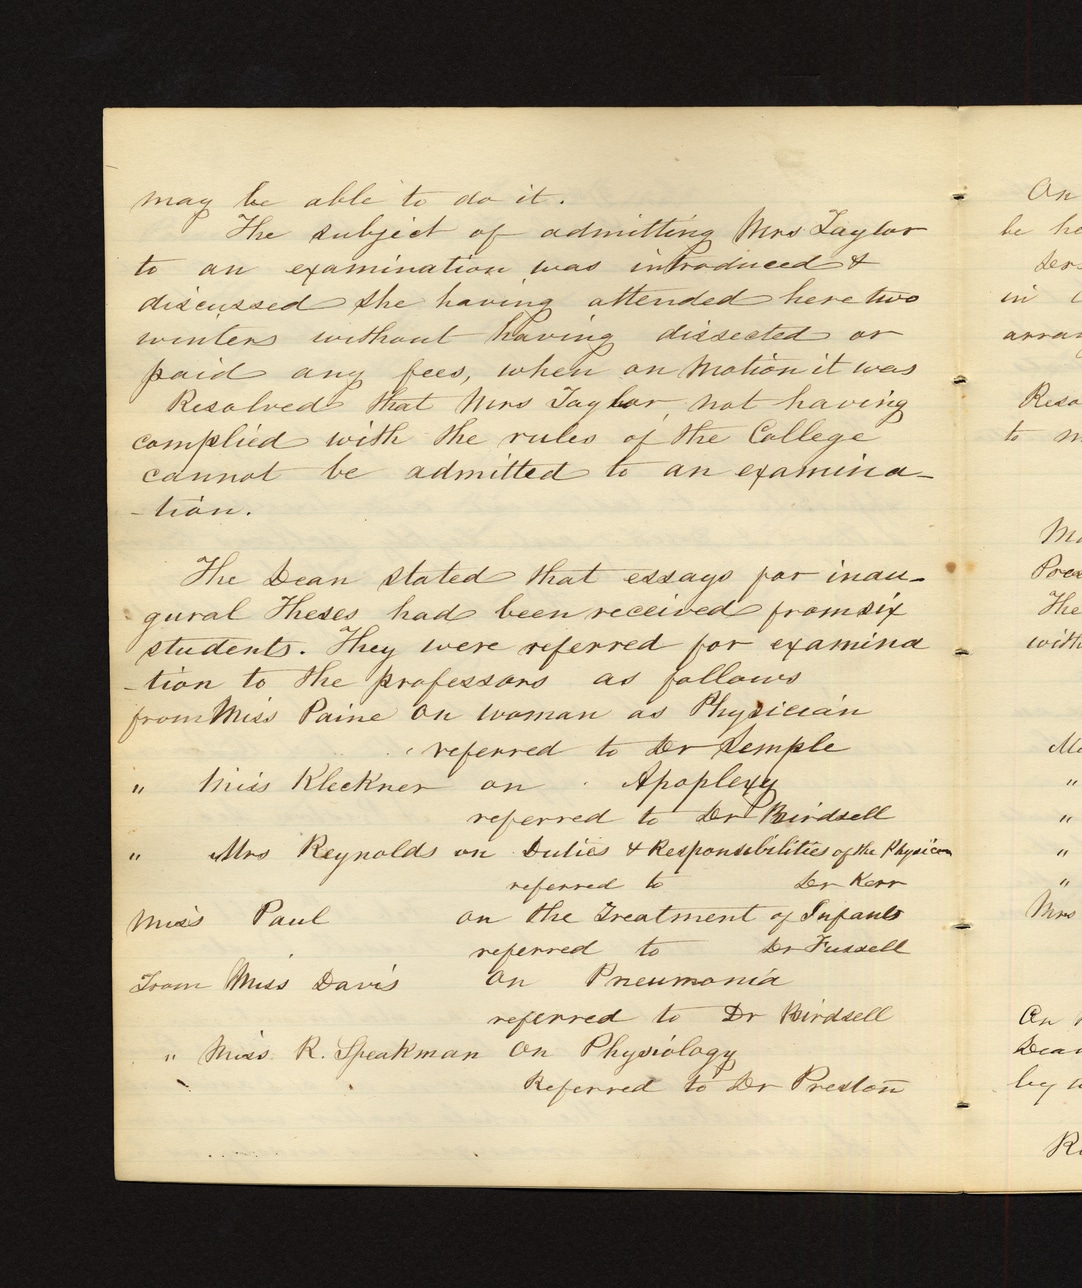 may be able to do it.
The subject of admitting Mrs Taylor
to an examination was introduced &
discussed she having attended here two
winters without having dissected or
paid any fees, when on motion it was
Resolved that Mrs Taylor, not having
complied with the rules of the College
cannot be admitted to an examina-
-tion.
The Dean stated that essays for inau-
gural Theses had been received from six
students. They were referred for examina
-tion to the professors as follows
from Miss Paine On woman as Physician
referred to Dr Semple
" Miss Kleckner on Apoplexy
referred to Dr Birdsell
" Mrs Reynolds on Duties & Responsibilities of the Physician
referred to Dr Kerr
Miss Paul on the Treatment of Infants
referred to Dr Fussell
From Miss Davis On Pneumonia
referred to Dr Birdsell
" Miss R. Speakman On Physiology
Referred to Dr Preston
On
be he
Dr
in
arran
Reso
to m
Pres
The
with
"
"
"
"
Mrs
On
Dean
by